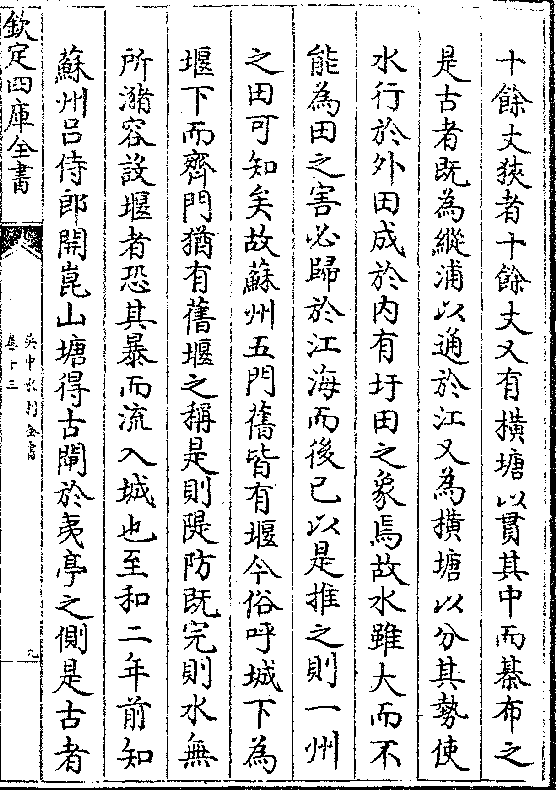 十餘丈狹者十餘丈又有橫塘以貫其中而棊布之
是古者既為縱浦以通於江又為橫塘以分其勢使
水行於外田成於内有圩田之象焉故水雖大而不
能為田之害必歸於江海而後已以是推之則一州
之田可知矣故蘇州五門舊皆有堰今俗呼城下為
堰下而齊門猶有舊堰之稱是則隄防既完則水無
所瀦容設堰者恐其暴而流入城也至和二年前知
蘇州吕侍郎開崑山塘得古閘於夷亭之側是古者
欽定四庫全書
吳中水利全書
卷十三
九